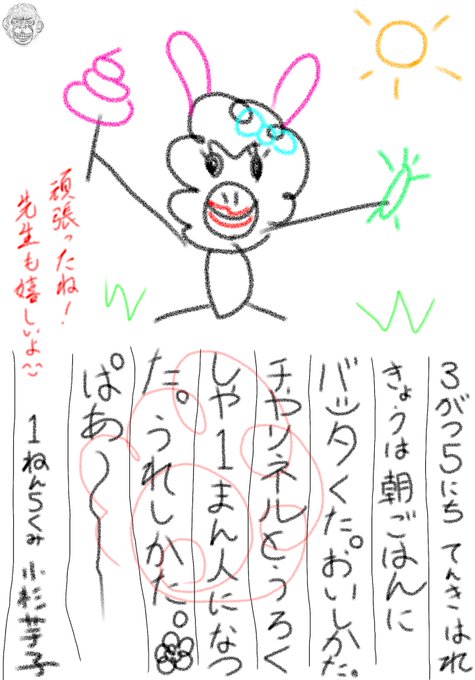 頑張ったね!
先生も嬉しいよ
3がつ5にち てんきはれ
きょうは朝ごはんに
バッタくた。おいしかた。
チャンネルとうろく
しゃ1まん人になつ
た。うれしかた。
ぱあ〜
1ねん5くみ 小杉芋子